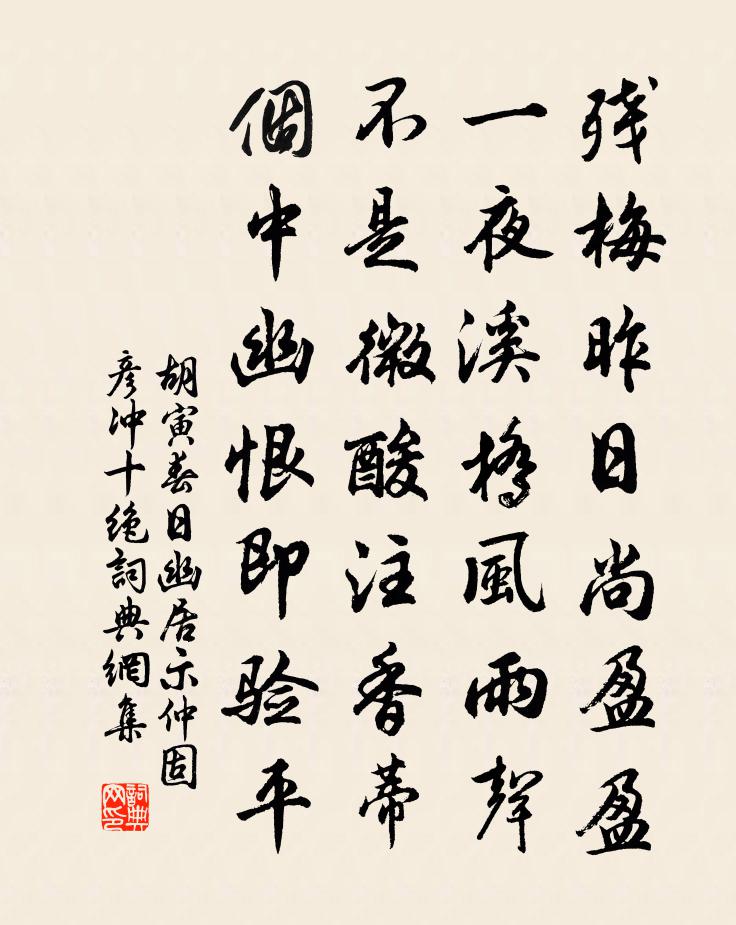 残梅昨日尚盈盈
一夜溪橋風雨聲
不是微酸注香蒂
個中幽恨即验平
胡寅春日幽居示仲固
彦冲十绝詞典網集
詞典网印